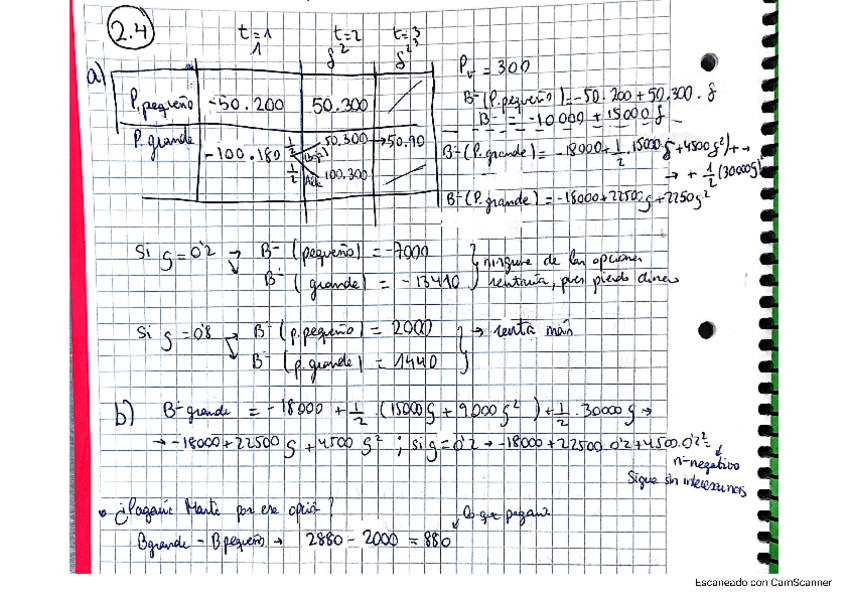 2.4
t=1 t=2 t=3
1 δ² δ³
a)
P. pequeño -50.200 50.300
P. grande -100.180 ½ Baj 50.300 → 50.90
½ Alt 100.300
Pv = 300
Bº (P. pequeño) = -50.200 + 50.300.δ
Bº = -10000 + 15000 δ
Bº (P. grande) = -18000 + ½ . 15000 δ + 4500 δ²) + →
→ + ½ (30000 δ)
Bº (P. grande) = -18000 + 22500 δ + 2250 δ²
Si δ = 0'2 → Bº (pequeño) = -7000
Bº (grande) = -13410
ninguna de las opciones
rentaría, pues pierdo dinero
Si δ = 0'8 → Bº (p. pequeño) = 2000 → renta más
Bº (p. grande) = 1440
b) Bº grande = -18000 + ½ . (15000 δ + 9000 δ²) + ½ . 30000 δ →
→ -18000 + 22500 δ + 4500 δ² ; si δ = 0'2 → -18000 + 22500 . 0'2 + 4500 . 0'2² =
nº negativo
Sigue sin interesarnos
¿Pagaría Marta por esa opción? lo que pagaría
Bgrande - Bpequeño → 2880 - 2000 = 880
Escaneado con CamScanner